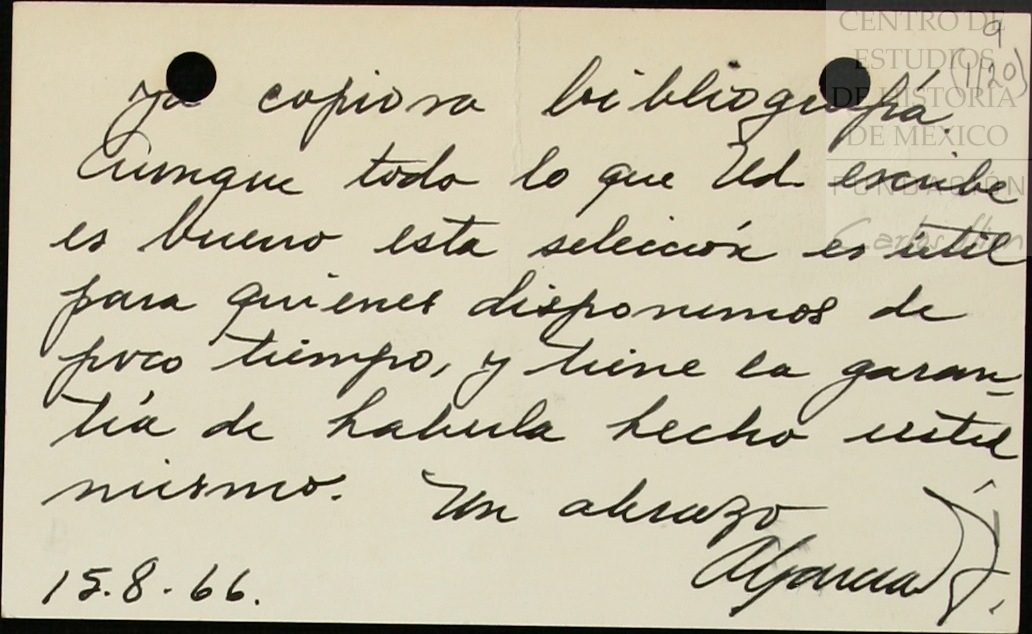 CENTRO DE
ESTUDIOS
DE HISTORIA
DE MEXICO
FUNDACIÓN
Carlos Slim
9
(1/20)
ya copiosa bibliografía.
Aunque todo lo que Ud. escribe
es bueno esta selección es útil
para quienes disponemos de
poco tiempo, y tiene la garan-
tía de haberla hecho usted
mismo. Un abrazo
15.8.66.